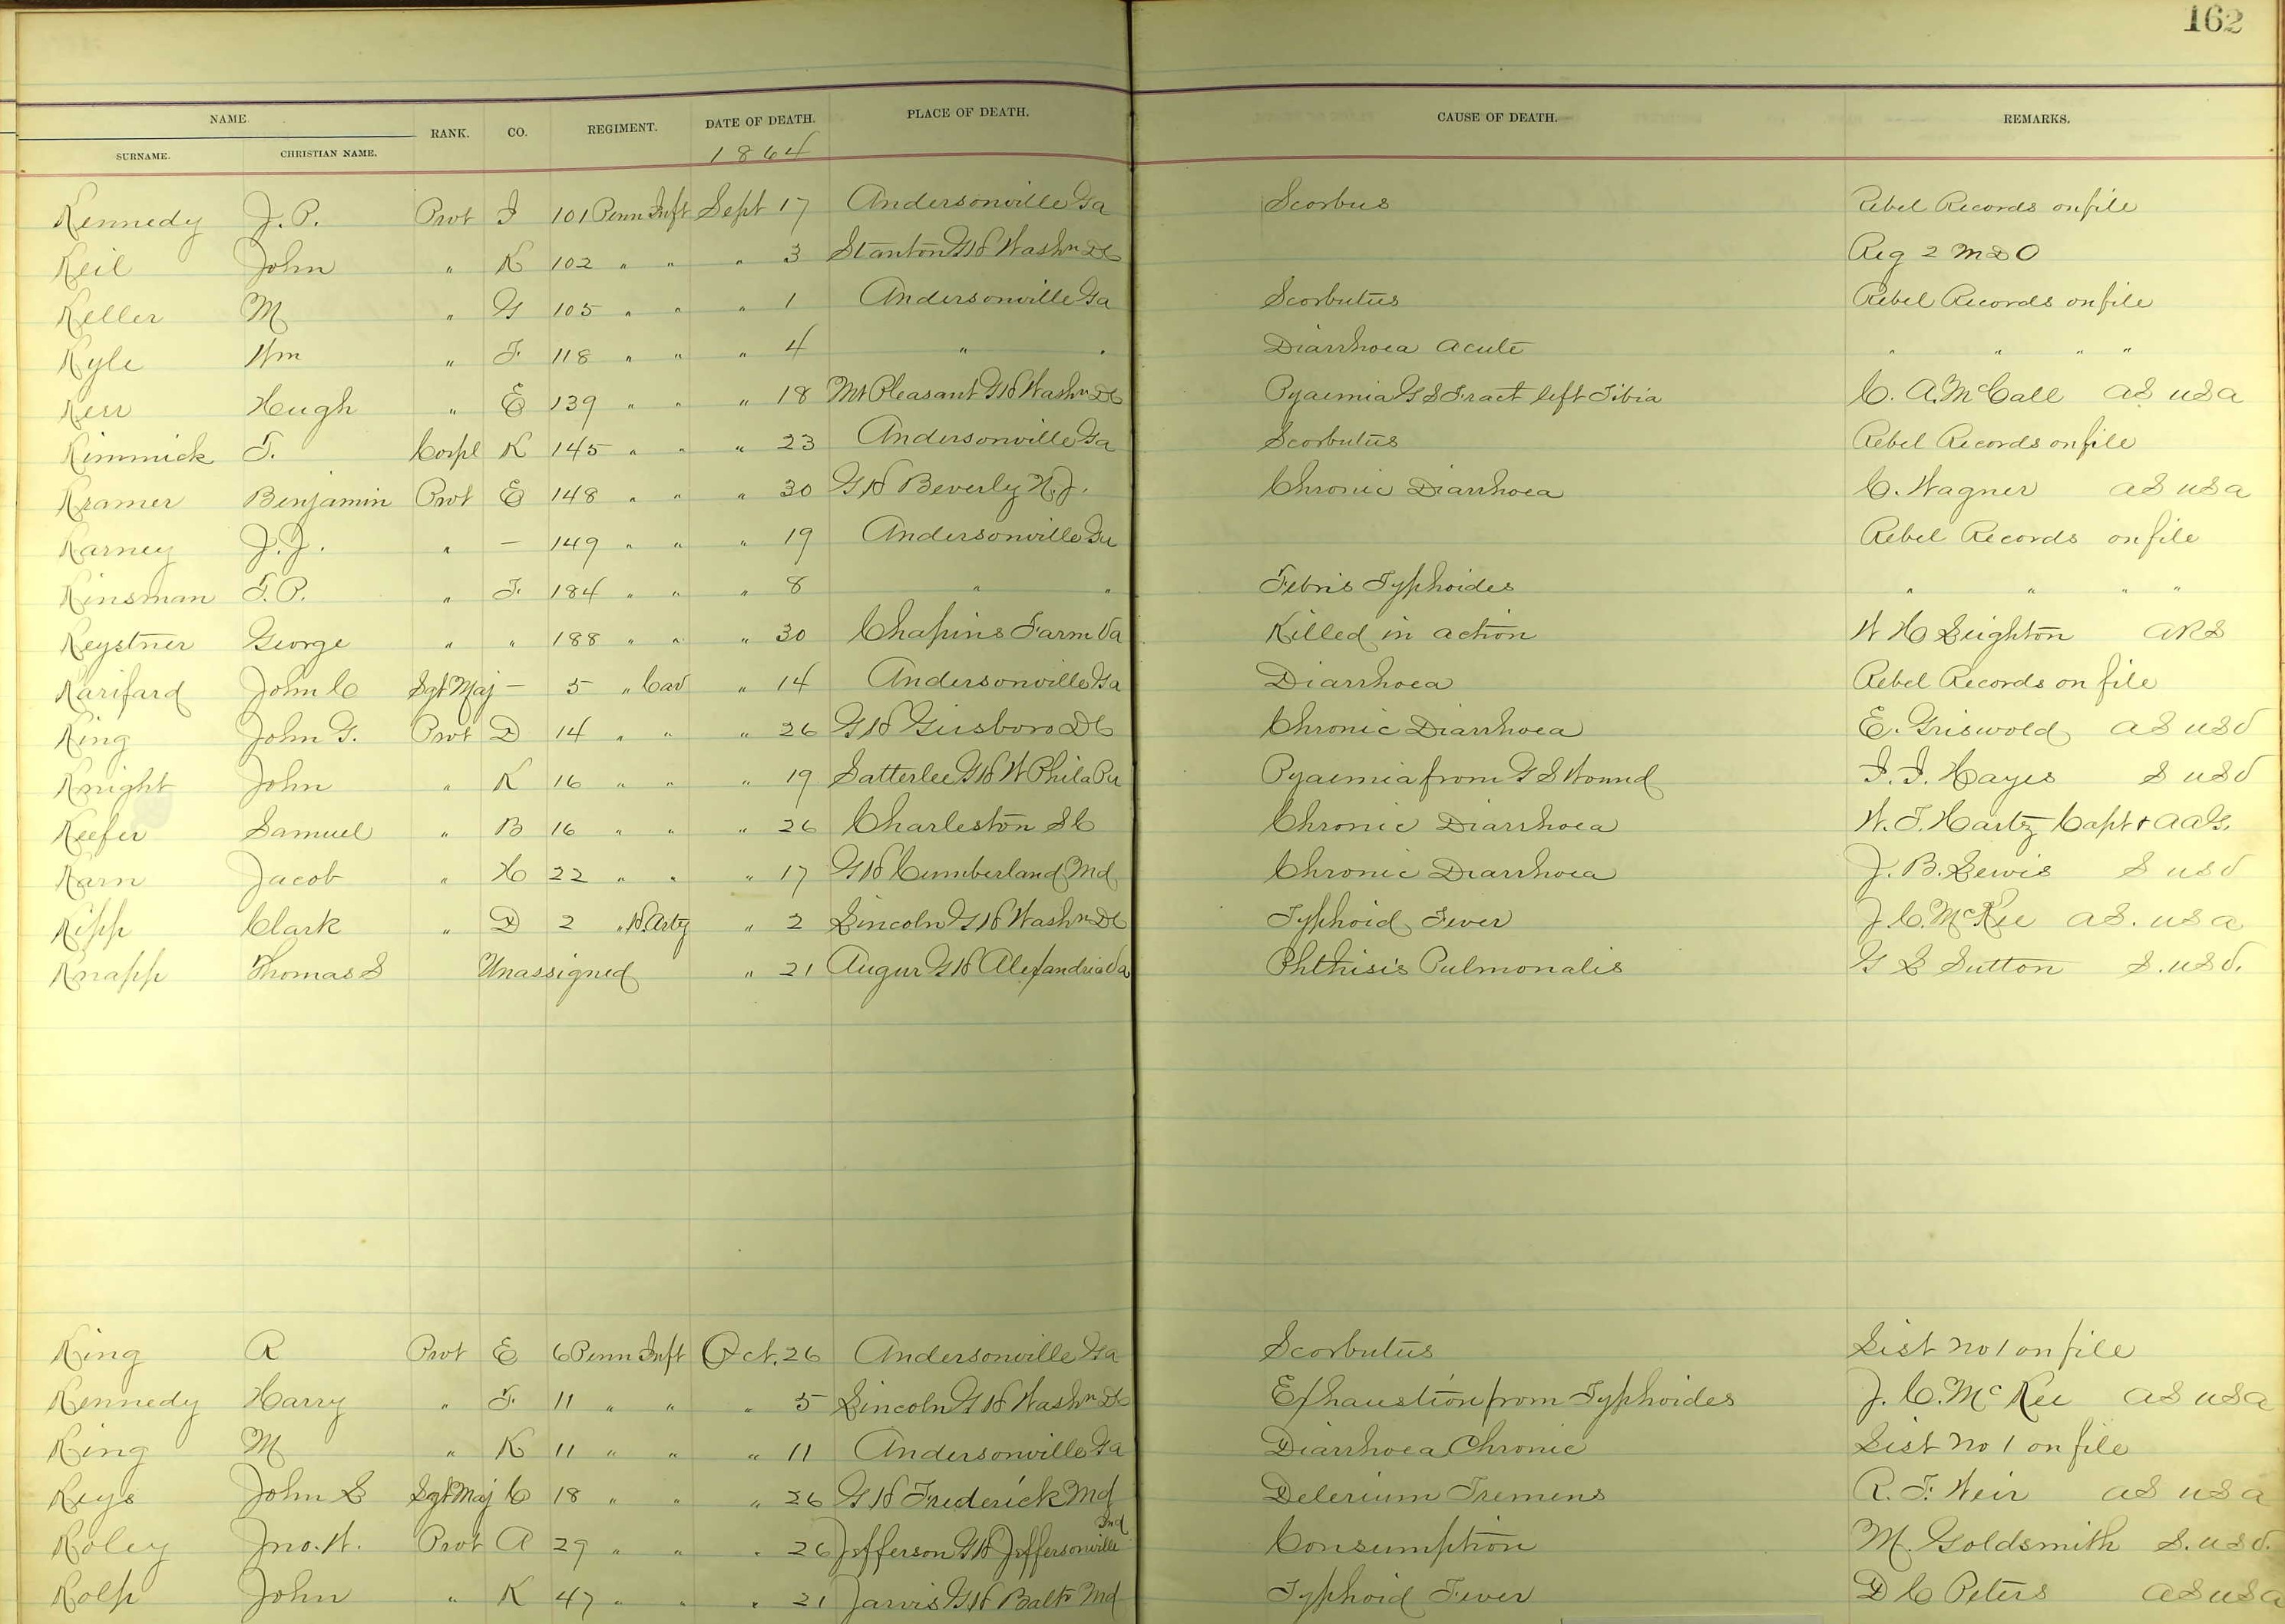 162
NAME. RANK. CO. REGIMENT. DATE OF DEATH. PLACE OF DEATH. CAUSE OF DEATH. REMARKS.
SURNAME. CHRISTIAN NAME. 1864
Kennedy J. P. Prvt I 101 Penn Inft Sept 17 Andersonville Ga Scorbus Rebel Records on file
Keil John " K 102 " " " 3 Stanton GH Washn DC Reg 2 M D O
Keller M " G 105 " " " 1 Andersonville Ga Scorbutus Rebel Records on file
Kyle Wm " F 118 " " " 4 " " Diarrhoea acute " " " "
Kerr Hugh " E 139 " " " 18 Mt Pleasant GH Washn DC Pyaemia G S Fract left Tibia C. A. McCall AS USA
Kimmick T. Corpl K 145 " " " 23 Andersonville Ga Scorbutus Rebel Records on file
Kramer Benjamin Prvt E 148 " " " 30 GH Beverly N.J. Chronic Diarrhoea C. Wagner AS USA
Karney J. J. " — 149 " " " 19 Andersonville Ga Rebel Records on file
Kinsman F. P. " F 184 " " " 8 " " Febris Typhoides " " " "
Keystner George " " 188 " " " 30 Chapins Farm Va Killed in action W H Leighton ARS
Karifard John C Sgt Maj — 5 " Cav " 14 Andersonville Ga Diarrhoea Rebel Records on file
King John G. Prvt D 14 " " " 26 GH Giesboro DC Chronic Diarrhoea E. Griswold AS USV
Knight John " K 16 " " " 19 Satterlee GH W Phila Pa Pyaemia from G S Wound I. I. Hayes S USV
Keefer Samuel " B 16 " " " 26 Charleston SC Chronic Diarrhoea W. F. Hartz Capt & AAG.
Karn Jacob " H 22 " " " 17 GH Cumberland Md Chronic Diarrhoea J. B. Lewis S USV
Kipp Clark " D 2 " H. Arty " 2 Lincoln GH Washn DC Typhoid Fever J. C. McKee AS. USA
Knapp Thomas S Unassigned " 21 Augur GH Alexandria Va Phthisis Pulmonalis G L Sutton S. USV.
King R Prvt E 6 Penn Inft Oct. 26 Andersonville Ga Scorbutus List No 1 on file
Kennedy Harry " F 11 " " " 5 Lincoln GH Washn DC Exhaustion from Typhoides J. C. McKee AS USA
King M " K 11 " " " 11 Andersonville Ga Diarrhoea Chronic List No 1 on file
Keys John S Sgt Maj C 18 " " " 26 GH Frederick Md Delerium Tremens R. F. Weir AS USA
Koley Jno. W. Prvt A 29 " " " 26 Jefferson GH Jeffersonville Ind Consumption M. Goldsmith S. USV.
Kolp John " K 47 " " " 21 Jarvis GH Balto Md Typhoid Fever D C Peters AS USA